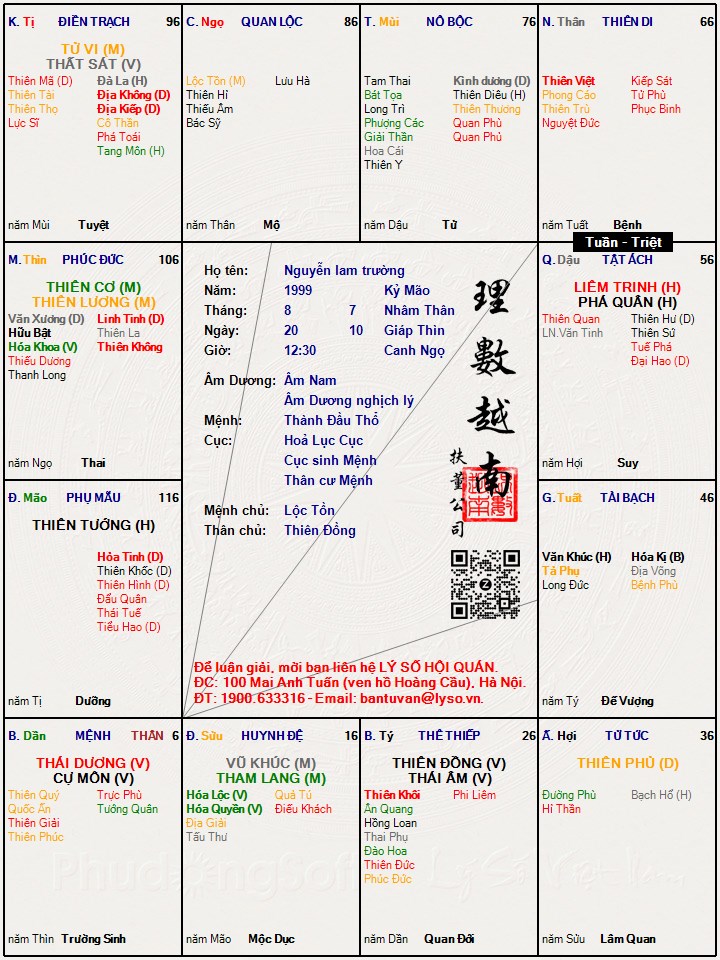 K. Tị ĐIỀN TRẠCH 96
TỬ VI (M)
THẤT SÁT (V)
Thiên Mã (D) Đà La (H)
Thiên Tài Địa Không (D)
Thiên Thọ Địa Kiếp (D)
Lực Sĩ Cô Thần
Phá Toái
Tang Môn (H)
năm Mùi Tuyệt
C. Ngọ QUAN LỘC 86
Lộc Tồn (M) Lưu Hà
Thiên Hỉ
Thiếu Âm
Bác Sỹ
năm Thân Mộ
T. Mùi NÔ BỘC 76
Tam Thai Kình dương (D)
Bát Tọa Thiên Diêu (H)
Long Trì Thiên Thương
Phượng Các Quan Phủ
Giải Thần Quan Phù
Hoa Cái
Thiên Y
năm Dậu Tử
N. Thân THIÊN DI 66
Thiên Việt Kiếp Sát
Phong Cáo Tử Phù
Thiên Trù Phục Binh
Nguyệt Đức
năm Tuất Bệnh
Tuần - Triệt
M. Thìn PHÚC ĐỨC 106
THIÊN CƠ (M)
THIÊN LƯƠNG (M)
Văn Xương (D) Linh Tinh (D)
Hữu Bật Thiên La
Hóa Khoa (V) Thiên Không
Thiếu Dương
Thanh Long
năm Ngọ Thai
Họ tên: Nguyễn lam trường
Năm: 1999 Kỷ Mão
Tháng: 8 7 Nhâm Thân
Ngày: 20 10 Giáp Thìn
Giờ: 12:30 Canh Ngọ
Âm Dương: Âm Nam
Âm Dương nghịch lý
Mệnh: Thành Đầu Thổ
Cục: Hoả Lục Cục
Cục sinh Mệnh
Thân cư Mệnh
Mệnh chủ: Lộc Tồn
Thân chủ: Thiên Đồng
理數越南
扶董公司
Để luận giải, mời bạn liên hệ LÝ SỐ HỘI QUÁN.
ĐC: 100 Mai Anh Tuấn (ven hồ Hoàng Cầu), Hà Nội.
ĐT: 1900.633316 - Email: bantuvan@lyso.vn.
Q. Dậu TẬT ÁCH 56
LIÊM TRINH (H)
PHÁ QUÂN (H)
Thiên Quan Thiên Hư (D)
LN.Văn Tinh Thiên Sứ
Tuế Phá
Đại Hao (D)
năm Hợi Suy
Đ. Mão PHỤ MẪU 116
THIÊN TƯỚNG (H)
Hỏa Tinh (D)
Thiên Khốc (D)
Thiên Hình (D)
Đẩu Quân
Thái Tuế
Tiểu Hao (D)
năm Tị Dưỡng
G. Tuất TÀI BẠCH 46
Văn Khúc (H) Hóa Kị (B)
Tả Phụ Địa Võng
Long Đức Bệnh Phù
năm Tý Đế Vượng
B. Dần MỆNH THÂN 6
THÁI DƯƠNG (V)
CỰ MÔN (V)
Thiên Quý Trực Phù
Quốc Ấn Tướng Quân
Thiên Giải
Thiên Phúc
năm Thìn Trường Sinh
Đ. Sửu HUYNH ĐỆ 16
VŨ KHÚC (M)
THAM LANG (M)
Hóa Lộc (V) Quả Tú
Hóa Quyền (V) Điếu Khách
Địa Giải
Tấu Thư
năm Mão Mộc Dục
B. Tý THÊ THIẾP 26
THIÊN ĐỒNG (V)
THÁI ÂM (V)
Thiên Khôi Phi Liêm
Ân Quang
Hồng Loan
Thai Phụ
Đào Hoa
Thiên Đức
Phúc Đức
năm Dần Quan Đới
Ấ. Hợi TỬ TỨC 36
THIÊN PHỦ (D)
Đường Phù Bạch Hổ (H)
Hỉ Thần
năm Sửu Lâm Quan